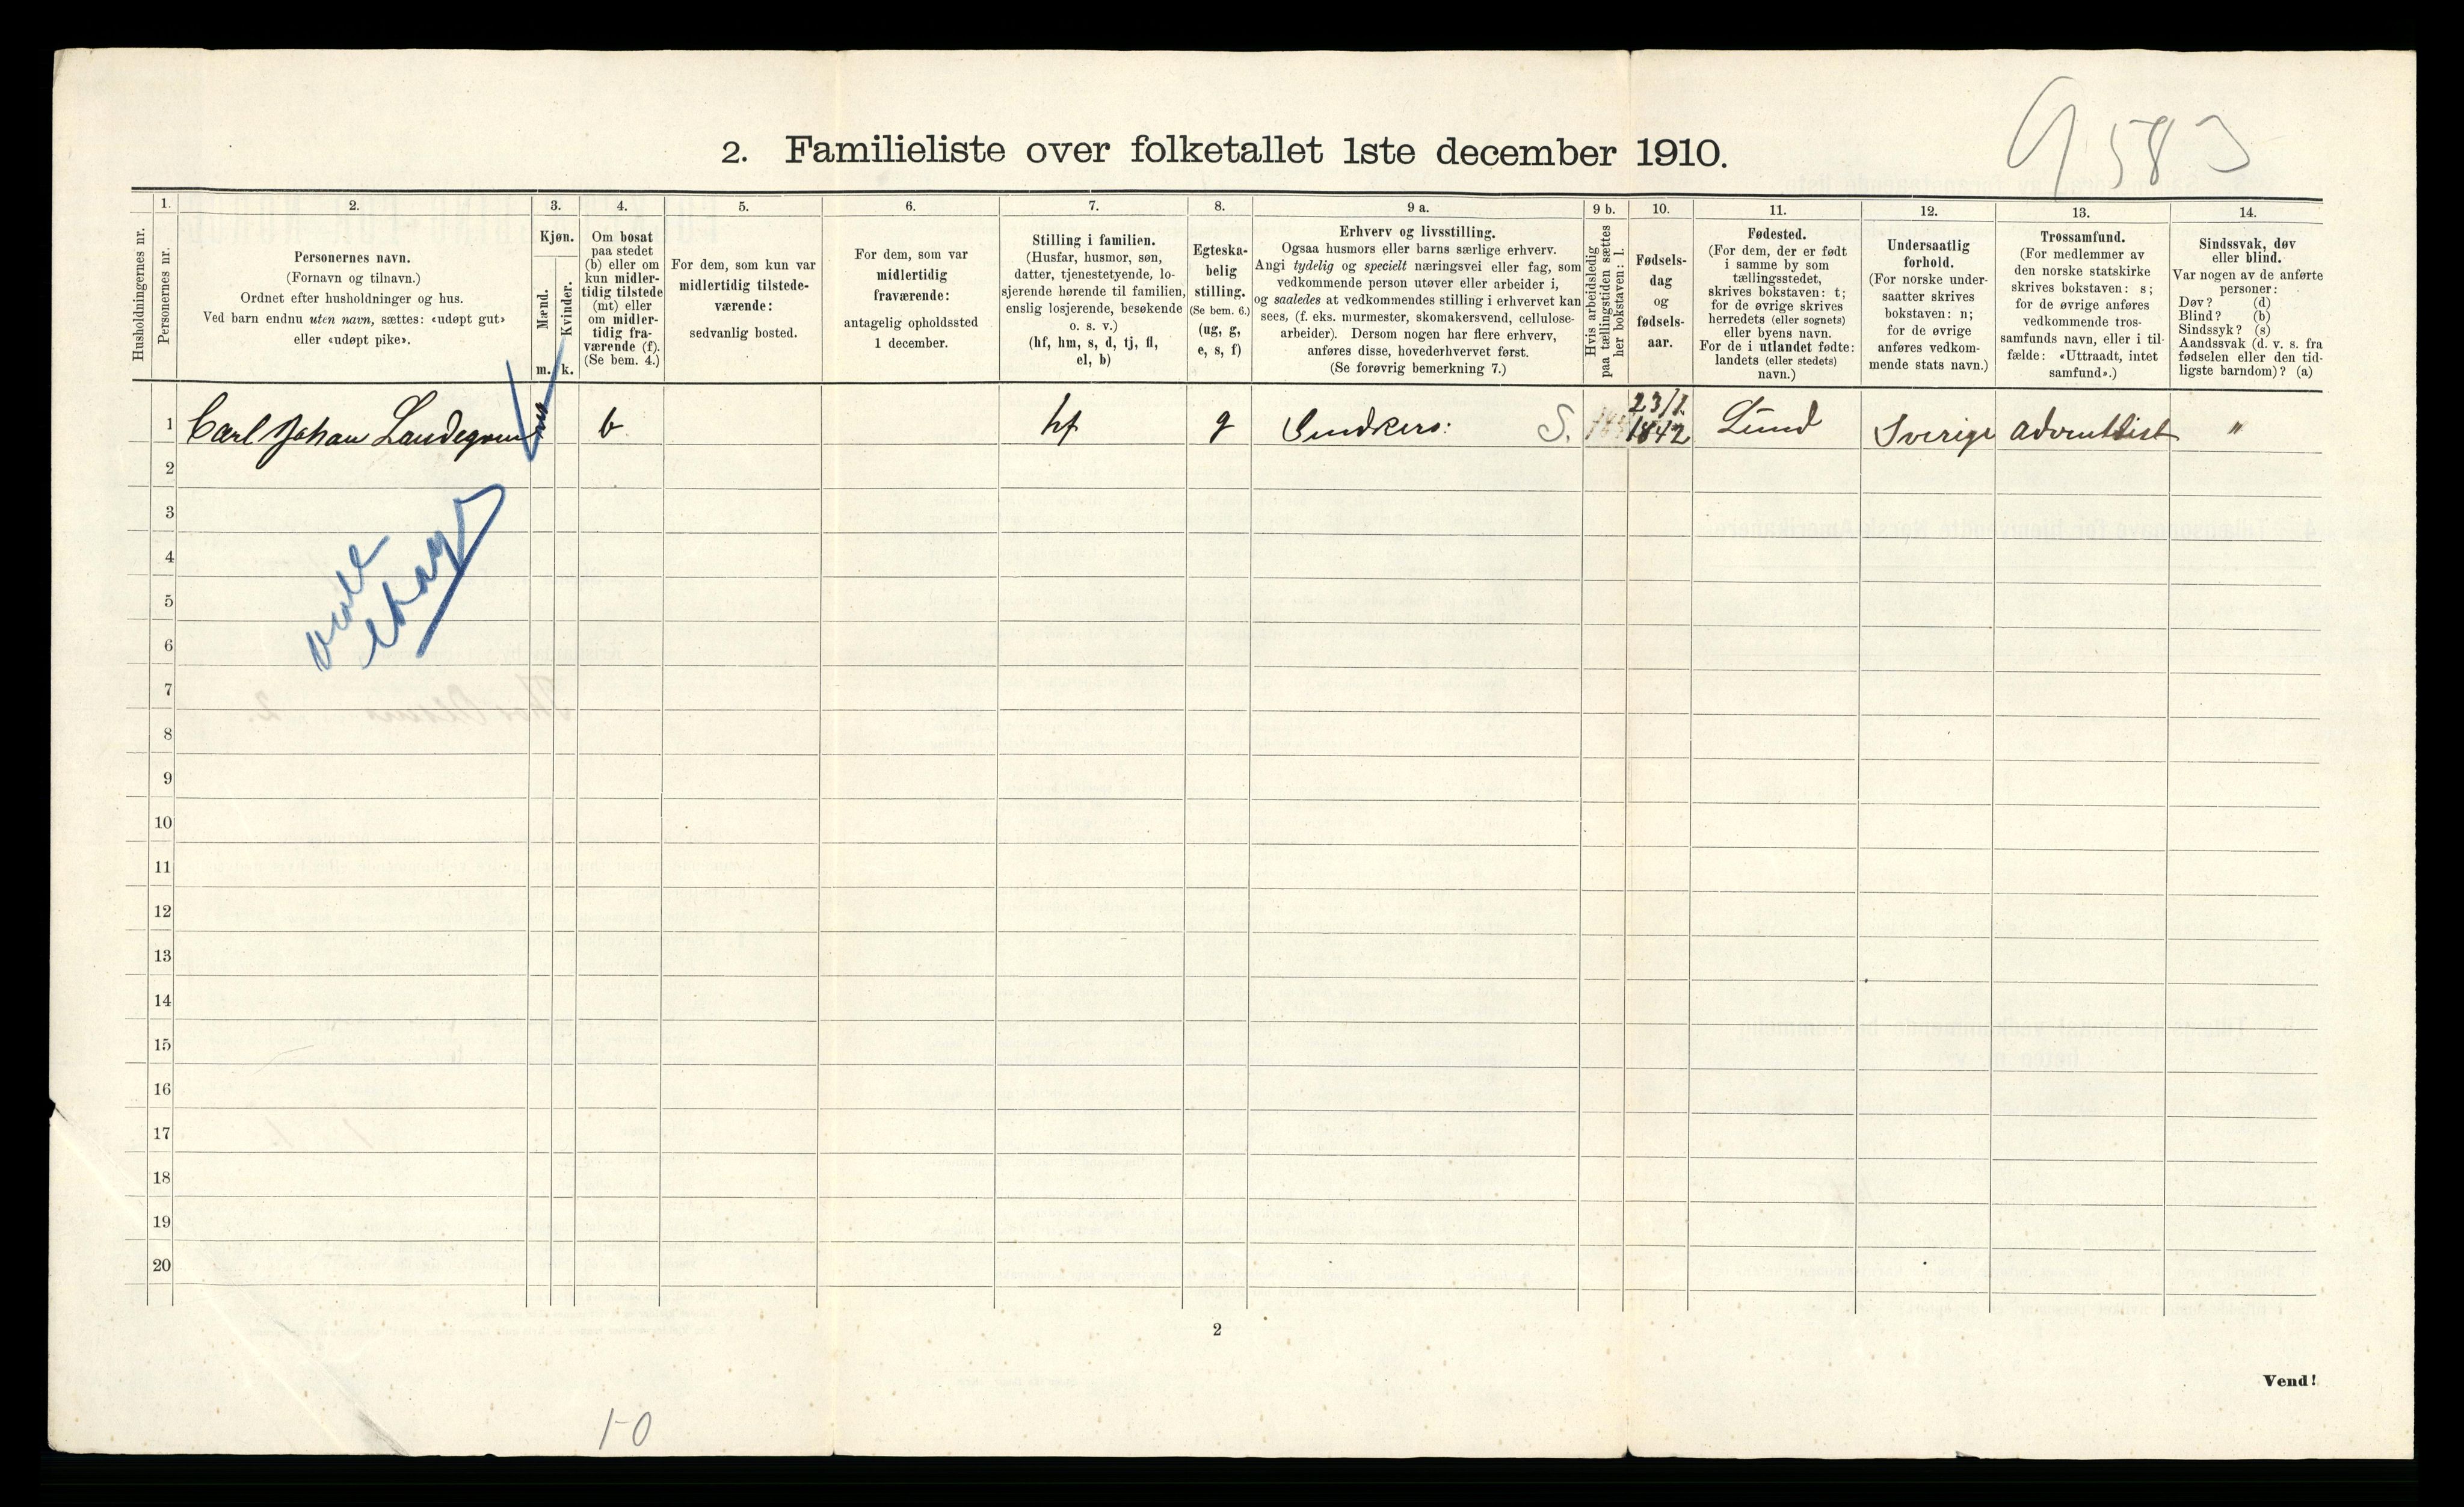 9583
2. Familieliste over folketallet 1ste december 1910.
Husholdningernes nr.
1.
Personernes nr.
2.
Personernes navn.
(Fornavn og tilnavn.)
Ordnet efter husholdninger og hus.
Ved barn endnu uten navn, sættes: «udøpt gut»
eller «udøpt pike».
3.
Kjøn.
Mænd.
Kvinder.
m. k.
4.
Om bosat
paa stedet
(b) eller om
kun midler-
tidig tilstede
(mt) eller
om midler-
tidig fra-
værende (f).
(Se bem. 4.)
5.
For dem, som kun var
midlertidig tilstede-
værende:
sedvanlig bosted.
6.
For dem, som var
midlertidig
fraværende:
antagelig opholdssted
1 december.
7.
Stilling i familien.
(Husfar, husmor, søn,
datter, tjenestetyende, lo-
sjerende hørende til familien,
enslig losjerende, besøkende
o. s. v.)
(hf, hm, s, d, tj, fl,
el, b)
8.
Egteska-
belig
stilling.
(Se bem. 6.)
(ug, g,
e, s, f)
9 a.
Erhverv og livsstilling.
Ogsaa husmors eller barns særlige erhverv.
Angi tydelig og specielt næringsvei eller fag, som
vedkommende person utøver eller arbeider i,
og saaledes at vedkommendes stilling i erhvervet kan
sees, (f. eks. murmester, skomakersvend, cellulose-
arbeider). Dersom nogen har flere erhverv,
anføres disse, hovederhvervet først.
(Se forøvrig bemerkning 7.)
9 b.
Hvis arbeidsledig
paa tællingstiden sættes
her bokstaven: l.
10.
Fødsels-
dag
og
fødsels-
aar.
11.
Fødested.
(For dem, der er født
i samme by som
tællingsstedet,
skrives bokstaven: t;
for de øvrige skrives
herredets (eller sognets)
eller byens navn.
For de i utlandet fødte:
landets (eller stedets)
navn.)
12.
Undersaatlig
forhold.
(For norske under-
saatter skrives
bokstaven: n;
for de øvrige
anføres vedkom-
mende stats navn.)
13.
Trossamfund.
(For medlemmer av
den norske statskirke
skrives bokstaven: s;
for de øvrige anføres
vedkommende tros-
samfunds navn, eller i til-
fælde: «Uttraadt, intet
samfund».)
14.
Sindssvak, døv
eller blind.
Var nogen av de anførte
personer:
Døv? (d)
Blind? (b)
Sindssyk? (s)
Aandssvak (d. v. s. fra
fødselen eller den tid-
ligste barndom)? (a)
1 Carl Johan m b hf g S. 23/1 1842 Lund Sverige adventist "
2
3
4
5
6
7
8
9
10
11
12
13
14
15
16
17
18
19
20
2
Vend!
1-0